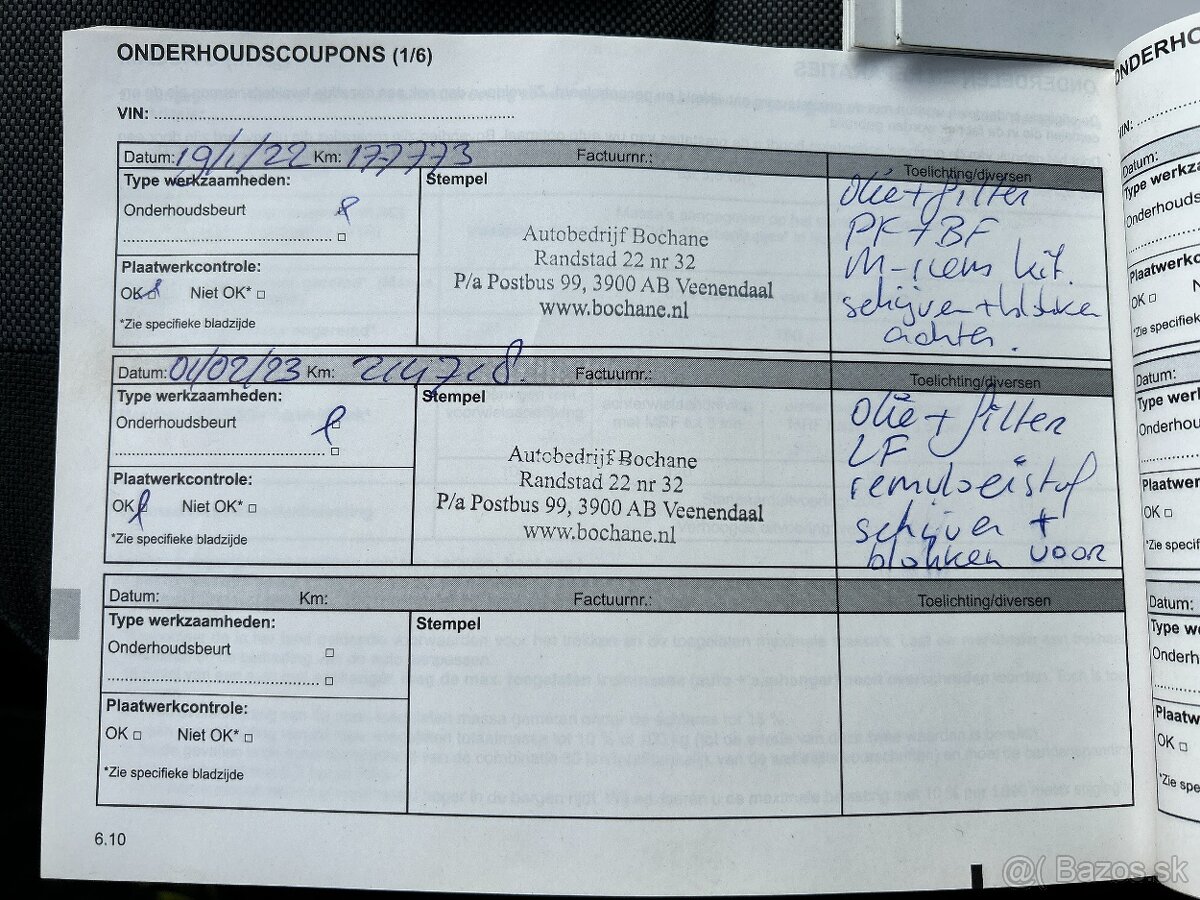 ONDERHOUDSCOUPONS (1/6)
VIN:
Datum: 19/1/22 Km: 177773 Factuurnr.: Toelichting/diversen
Type werkzaamheden:
Onderhoudsbeurt
Plaatwerkcontrole:
OK Niet OK*
*Zie specifieke bladzijde
Stempel
Autobedrijf Bochane
Randstad 22 nr 32
P/a Postbus 99, 3900 AB Veenendaal
www.bochane.nl
olie + filter
PF + BF
M-riem kit.
schijven + blokken
achter.
Datum: 01/02/23 Km: Factuurnr.: Toelichting/diversen
Type werkzaamheden:
Onderhoudsbeurt
Plaatwerkcontrole:
OK Niet OK*
*Zie specifieke bladzijde
Stempel
Autobedrijf Bochane
Randstad 22 nr 32
P/a Postbus 99, 3900 AB Veenendaal
www.bochane.nl
olie + filter
LF
remvloeistof
schijven +
blokken voor
Datum: Km: Factuurnr.: Toelichting/diversen
Type werkzaamheden:
Onderhoudsbeurt
Plaatwerkcontrole:
OK Niet OK*
*Zie specifieke bladzijde
Stempel
6.10
Datum:
OK
Datum:
OK
Datum:
OK
@( Bazos.sk